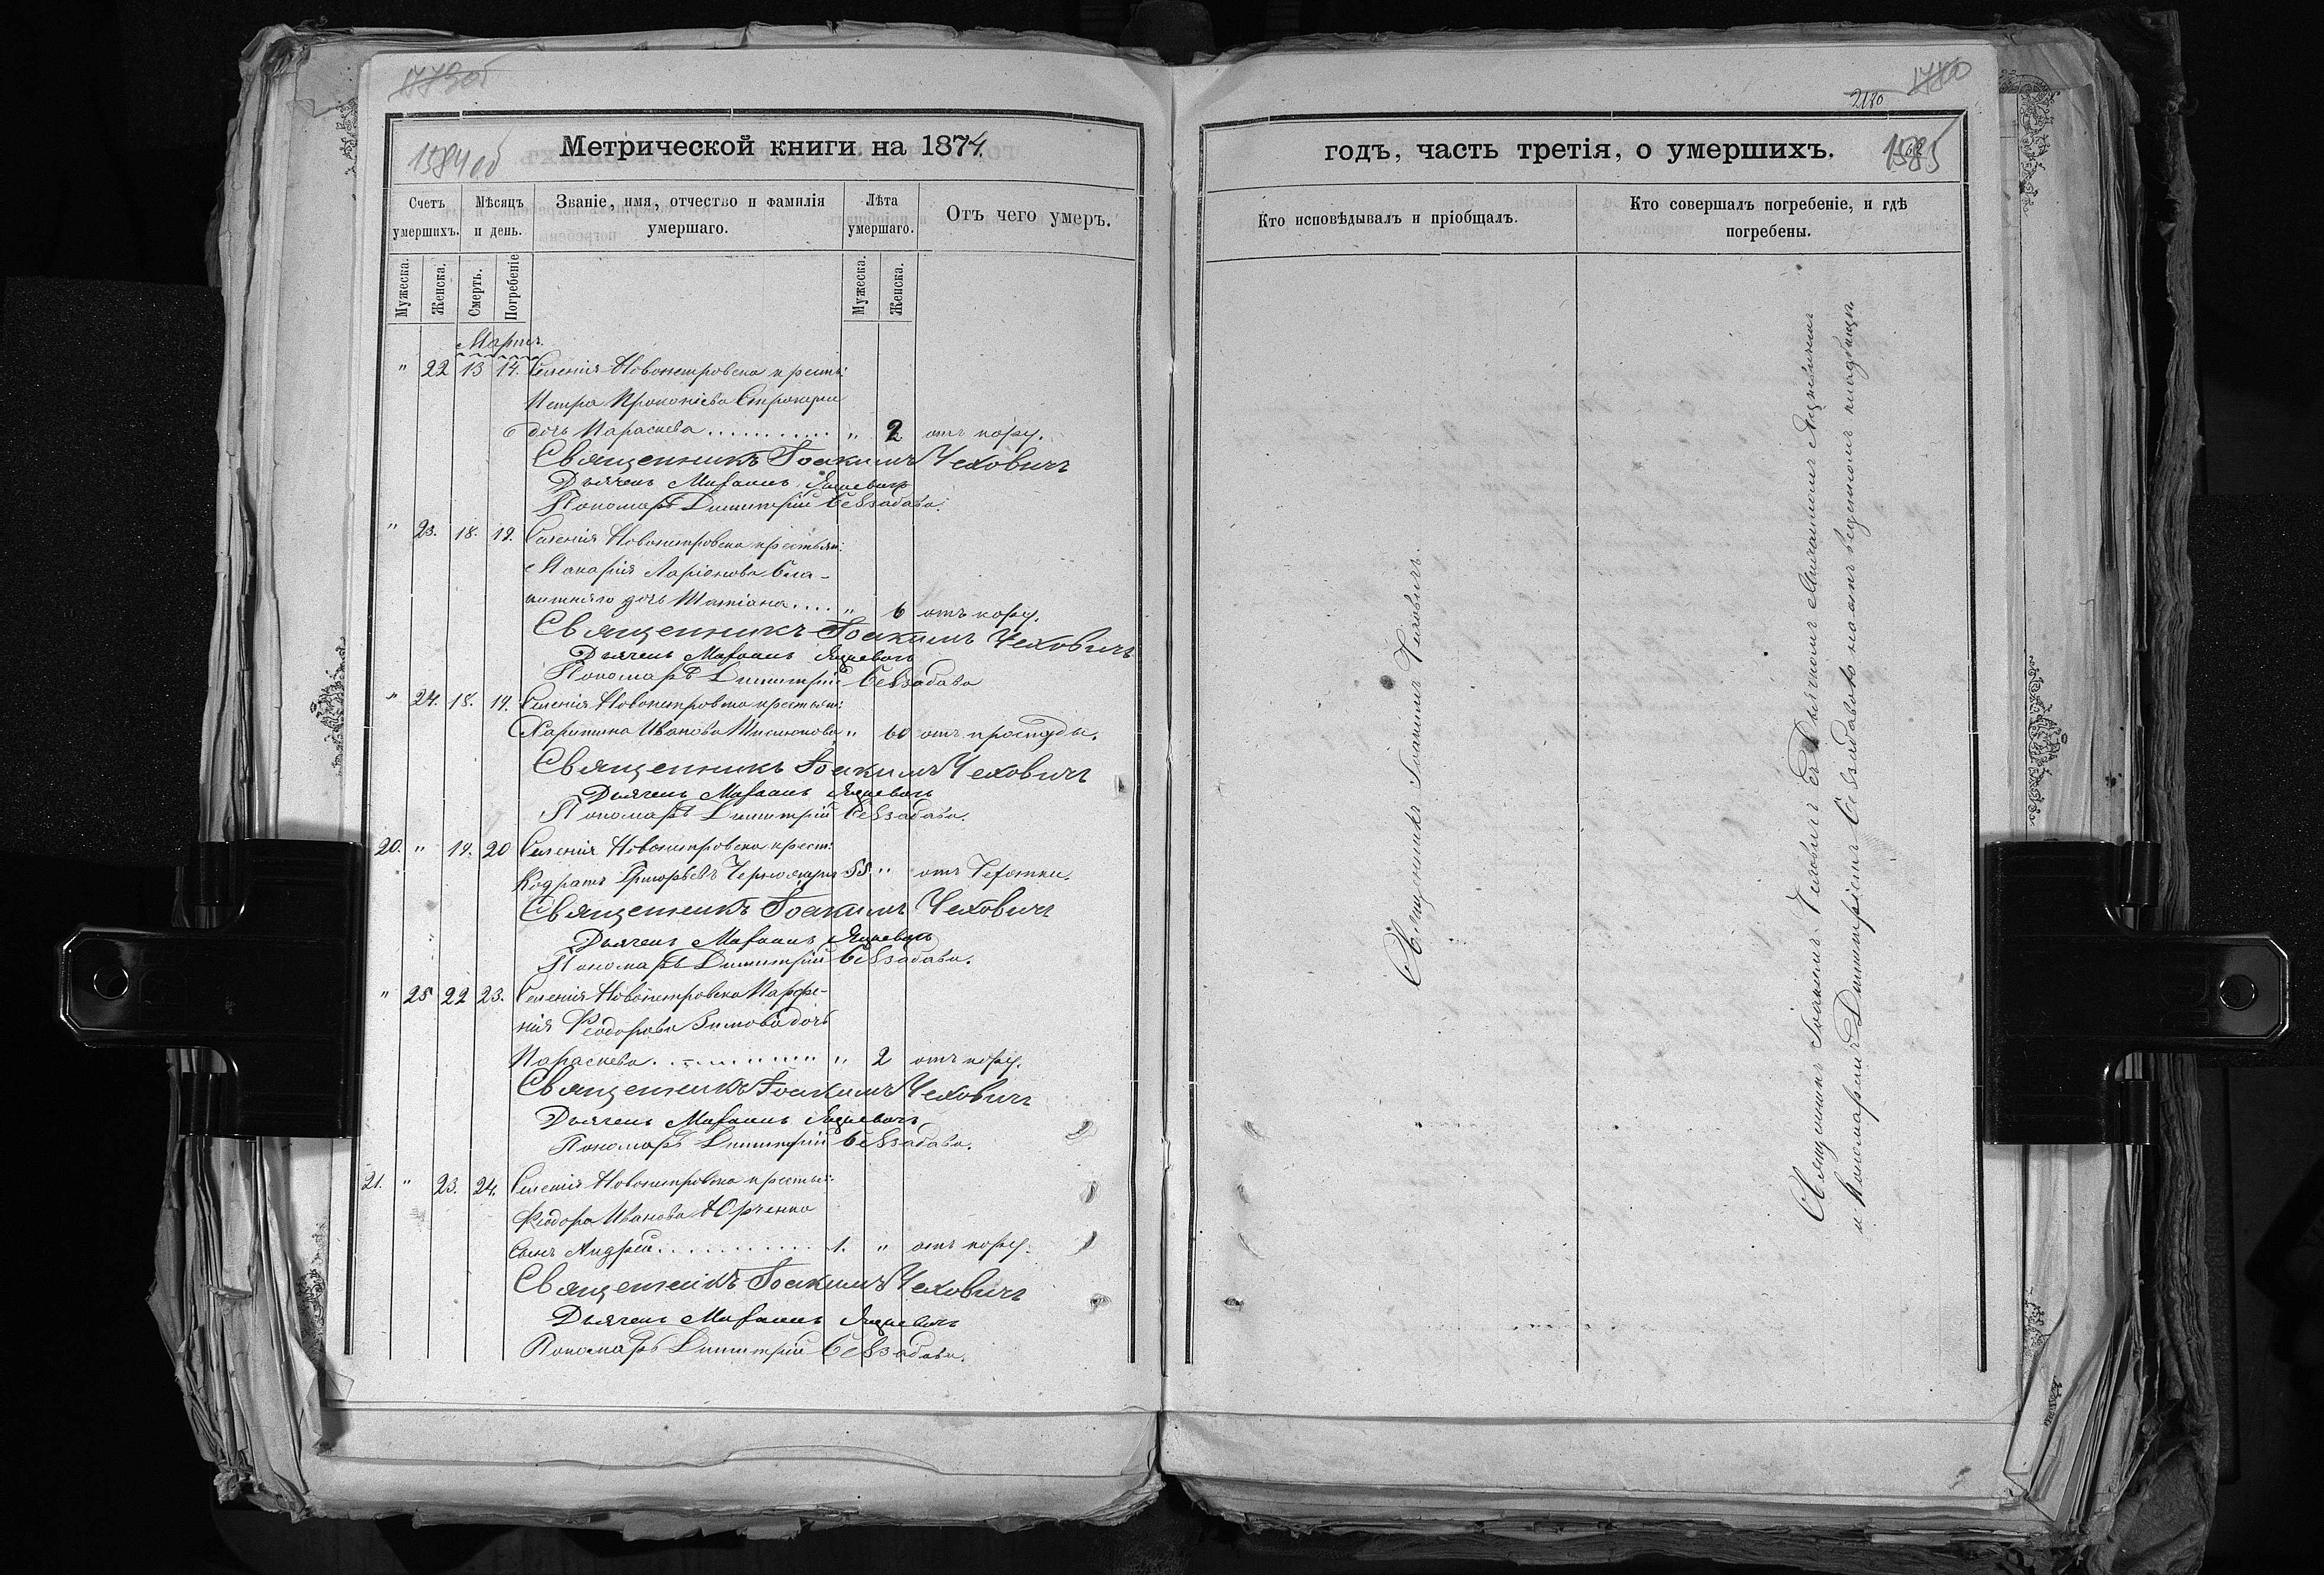 1779об
1584об
Метрической книги на 1874.
Счетъ умершихъ.
Мѣсяцъ и день.
Званіе, имя, отчество и фамилія умершаго.
Лѣта умершаго.
Отъ чего умеръ.
Мужеска.
Женска.
Смерть.
Погребеніе
Мужеска.
Женска.
Мартъ.
" 22 13 14. Селенія Новопетровска кресть:
Петра Прокопіева
дочь Параскева . . . . . . . . . . . " 2 отъ кору.
Священникъ Іоакимъ Чеховичъ
Дьячекъ Михаилъ Яцкевичъ
Пономарь Димитрій Беззабава.
" 23. 18. 19. Селенія Новопетровска крестьян:
Макарія Ларіонова
дочь Татіана . . . . " 6 отъ кору.
Священникъ Іоакимъ Чеховичъ
Дьячекъ Михаилъ Яцкевичъ
Пономарь Димитрій Беззабава
" 24. 18. 19. Селенія Новопетровска крестьян:
Харитина Иванова " 60 отъ простуды.
Священникъ Іоакимъ Чеховичъ
Дьячекъ Михаилъ Яцкевичъ
Пономарь Димитрій Беззабава.
20. " 19. 20 Селенія Новопетровска крест:
Кодратъ Григорьевъ 55 " отъ
Священникъ Іоакимъ Чеховичъ
Дьячекъ Михаилъ Яцкевичъ
Пономарь Димитрій Беззабава.
" 25 22 23. Селенія Новопетровска Парфе-
нія Ѳеодорова Зимова дочь
Параскева . . . . . . . . . . . " 2 отъ кору.
Священникъ Іоакимъ Чеховичъ
Дьячекъ Михаилъ Яцкевичъ
Пономарь Димитрій Беззабава.
21. " 23. 24. Селенія Новопетровска крестьян:
Ѳеодора Иванова Юрченка
сынъ Андрей . . . . . . . . . . . 1. " отъ кору.
Священникъ Іоакимъ Чеховичъ
Дьячекъ Михаилъ Яцкевичъ
Пономарь Димитрій Беззабава.
1780
2180
1585
годъ, часть третія, о умершихъ.
Кто исповѣдывалъ и пріобщалъ.
Кто совершалъ погребеніе, и гдѣ погребены.
Священникъ Іоакимъ Чеховичъ.
Священникъ Іоакимъ Чеховичъ съ Дьячкомъ Михаиломъ Яцкевичемъ
и Пономаремъ Димитріемъ Беззабавою на отведенномъ кладбищѣ.